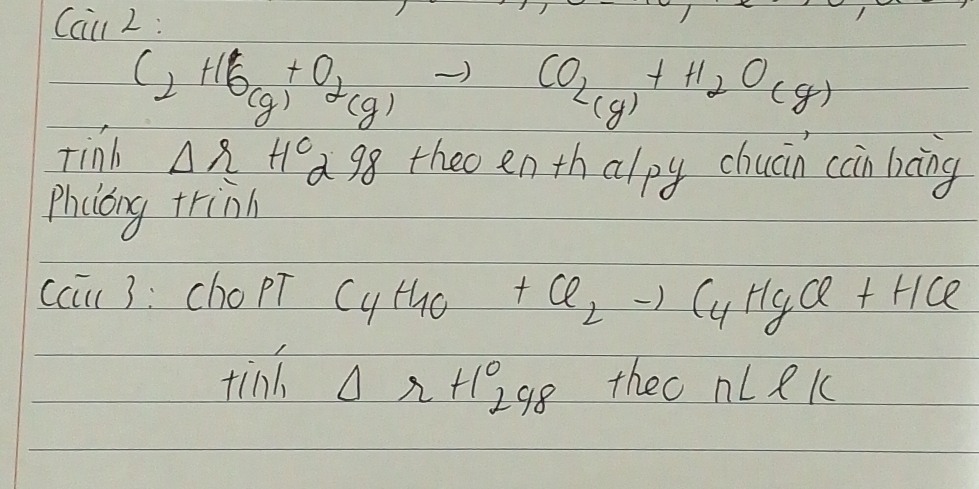 Câu 2:
C2H6(g) + O2(g) → CO2(g) + H2O(g)
Tính ΔrH°298 theo enthalpy chuẩn cân bằng
Phương trình
Câu 3: cho PT C4H10 + Cl2 → C4H9Cl + HCl
tính ΔrH°298 theo nLlk